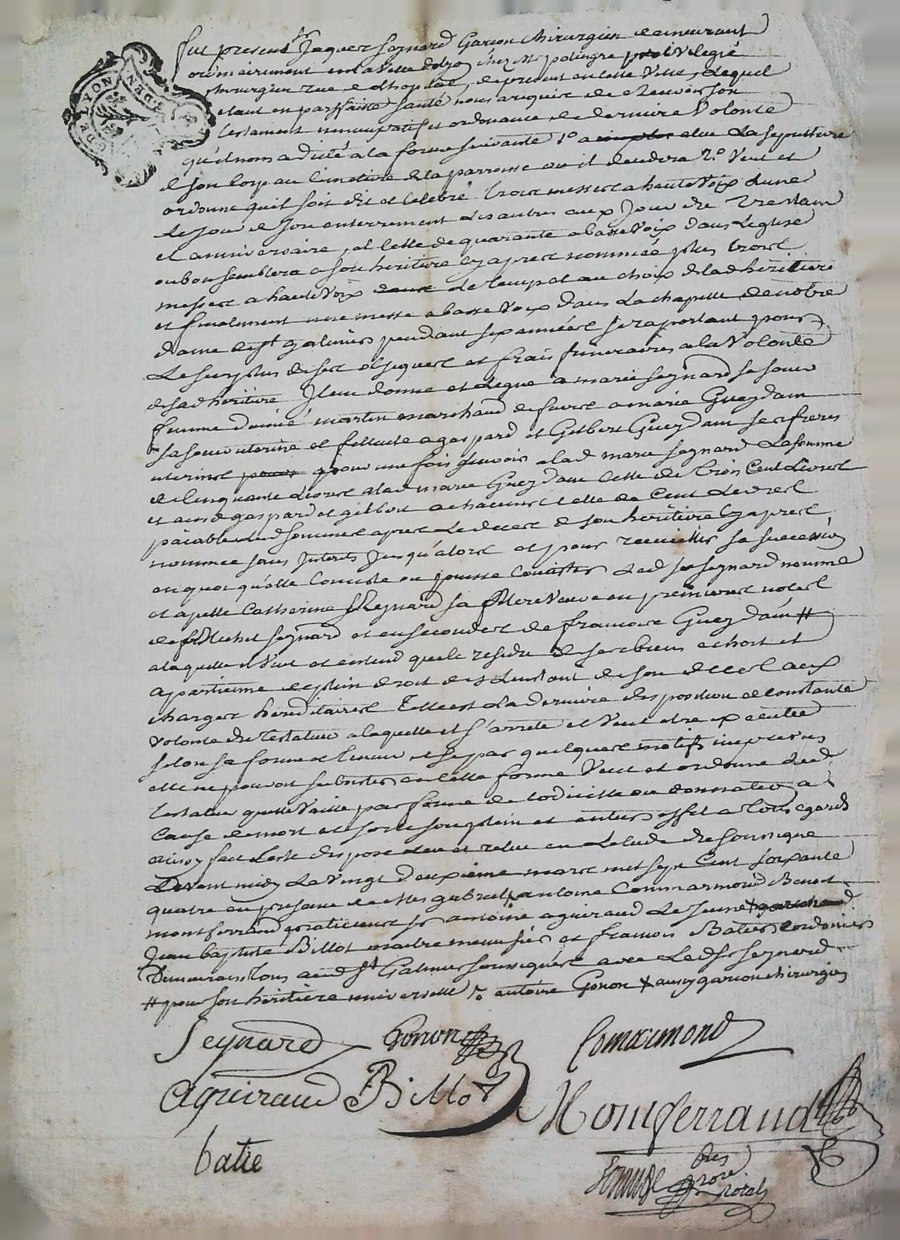 GEN DE LYON
fut present Sr Jaques Seynard Garcon chirurgien demeurant
ordinairement en la Ville de Lyon chez Mr polingre privilegié
chirurgien rue de l'hopital, de present en cette Ville, Lequel
etant en parffaitte santé nous a requis de recevoir son
testament nuncupatif et ordonnance de derniere Volonté
qu'il nous a dicté a la forme suivante 1o a elue La sepulture
de son corps au cimetiere de la parroisse ou il decedera 2o Veut et
ordonne qu'il soit dit et celebré trois messes a haute Voix d'une
Le jour de son enterrement Les autres aux jour de trentain
et anniversaire, et celle de quarante a basse Voix dans L'eglise
ou bon semblera a son heritiere cy apres nommée plus trois
messes a haute Voix Le temps et au choix de lad heritiere
et finalement une messe a basse Voix dans La chapelle de notre
dame de st galmier pendant six années s'en raportant pour
Le surplus de ses obseques et frais funeraires a la Volonté
de sad heritiere Item donne et legue a marie Seynard sa soeur
femme d'aimé martin marchand de a marie Gueydam
sa soeur uterine et a gaspard et Gilbert Gueydam ses freres
uterins pour une fois scavoir a lad marie Seynard La somme
de Cinquante Livres a lad marie Gueydam celle de trois Cent Livres
et aux d gaspard et gilbert a chacuns celle de Cent Livres
paiable lesd sommes apres Le deces de son heritiere cy apres
nommée sans Interets jusqu'alors et pour recueillir sa succession
en quoi qu'elle Consiste ou puisse Consister Led sr Seynard nomme
et apelle Catherine sa mere Veuve en premieres noces
de sr Michel Seynard et en secondes de francois Gueydam #
a laquelle il Veut et entend que le residu de ses biens echoit et
apartienne de plein droit des L'instant de son deces aux
charges hereditaires Telle est La derniere disposition et constante
Volonté du testateur a laquelle il s'arrete et Veut etre executée
selon sa forme et teneur et si par quelques motifs imprevus
elle ne pouvoit subsister en cette forme Veut et ordonne Led
testateur qu'elle Vaille par forme de Codicille ou donnation a
Cause de mort et sorte son plein et entier effet a tous egards
ainsy fait Leste dispose Leu et relue en L'etude du soussigne
avant midy Le Vingt deuxieme mars mil sept Cent soixante
quatre en presence de Mes gabriel antoine Commarmond Benoit
montferrand praticiens sr antoine aguiraud Le jeune
Jean baptiste Billot maitre menuisier et francois Batie Cordonier
Demeurans tous aud St Galmier soussignés avec Led Sr Seynard
# pour son heritiere universelle sr antoine Gonon + aussy garcon chirurgien
Seynard Gonon Comarmond
Aguiraud Billot Montferrand
batie